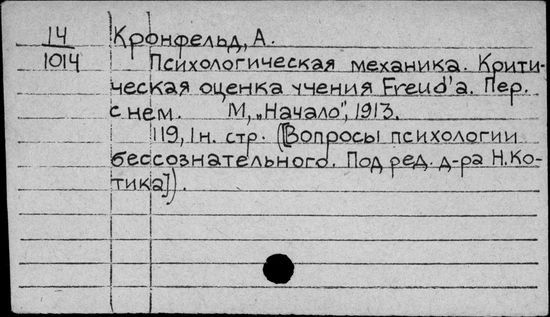 14
1014
Кронфельд, А.
Психологическая механика. Крити-
ческая оценка учения Freud'а. Пер.
с нем. М, „Начало", 1913.
119, 1 н. стр. ([Вопросы психологии
бессознательного. Под ред. д-ра Н. Ко-
тика]).